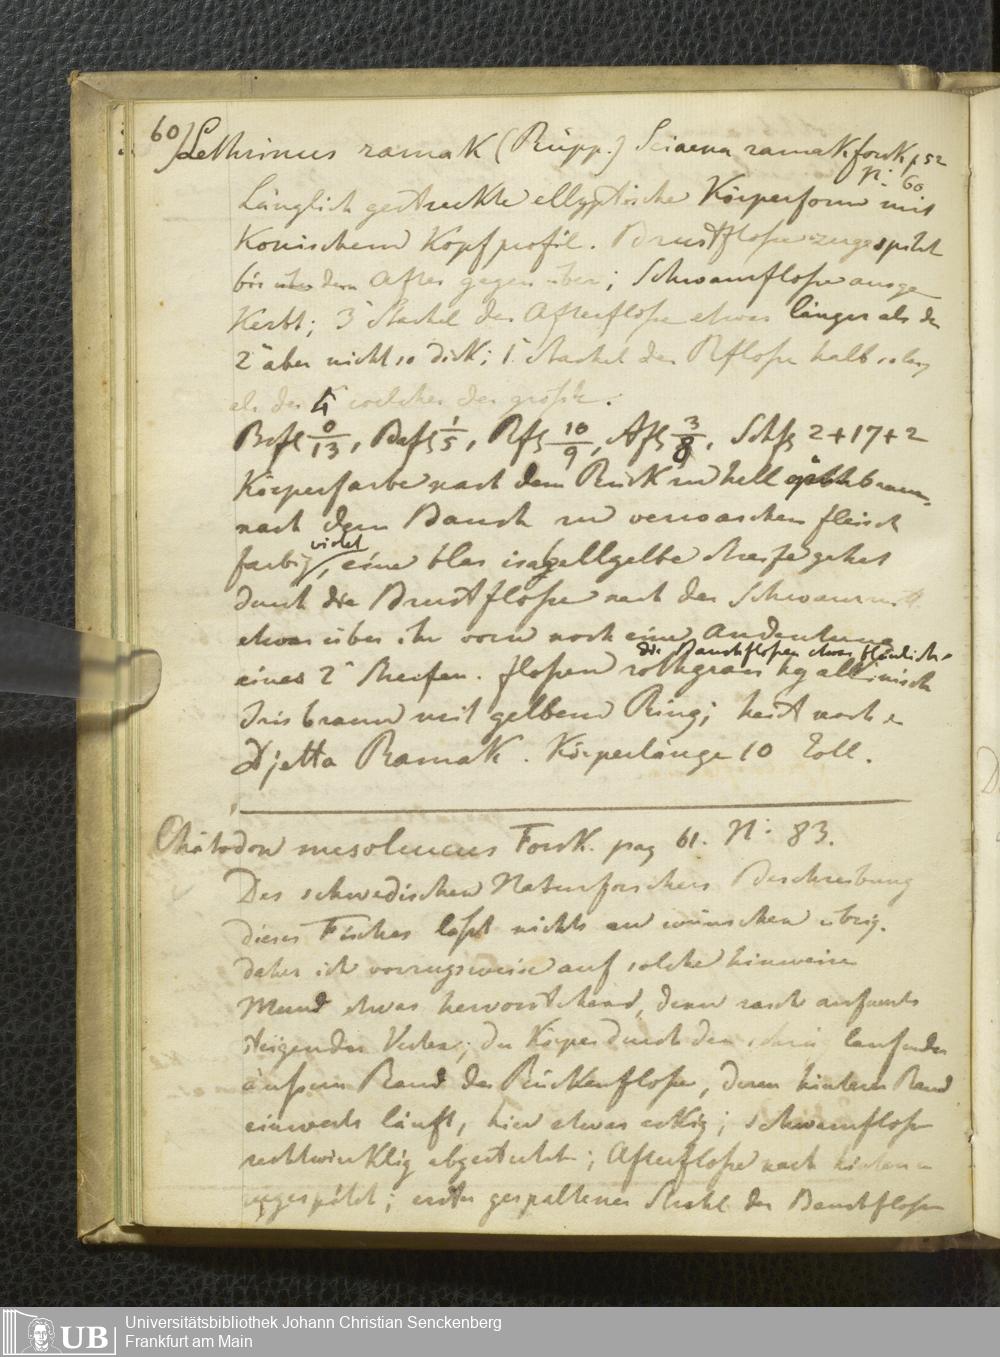 60) Lethrinus ramak (Rüpp.) Sciaena ramak forsk p 52
N: 60
Länglich gestreckte ellyptische Körperform mit
Konischem Kopfprofil. Brustflosse zugespitzt
bis dem After gegen über; Schwanzflosse ausge
Kerbt; 3 Stachel der Afterflosse etwas länger als der
2 aber nicht so dick; 1 Stachel der Rflosse halb so lang
als der 4 welcher der grösste.
Brfl 0/13, Bafl 1/5, Rfl 10/9, Afl 3/8, Schfl 2+17+2
Körperfarbe nach dem Rück zu hell braun,
nach dem Bauch zu verwaschen fleisch
farbig violet, eine blas isabellgelbe Streife gehet
durch die Brustflosse nach der Schwanz
etwas über ihr vorn noch eine Andeutung
die Bauchflossen etwas bläulich.
eines 2 Streifen. flossen rothgrau
Iris braun mit gelbem Ring; heist
Djetta Ramak. Körperlänge 10 Zoll.
Chätodon mesoleucus Forsk. pag 61. N: 83.
Des schwedischen Naturforschers Beschreibung
dieses Fisches lasst nichts zu wünschen übrig.
daher ich vorzugsweise auf solche hinweise
Mund etwas hervorstehend, dann rasch aufwerts
steigender Körper durch den laufenden
äussern Rand der Rückenflosse, deren hintern Rand
einwerts läuft, hier etwas eckig; Schwanzflosse
rechtwinklig abgestutzt; Afterflosse nach hinten
zugespitzt; erster gespaltener Strahl der Bauchflosse
Universitätsbibliothek Johann Christian Senckenberg
Frankfurt am Main
UB